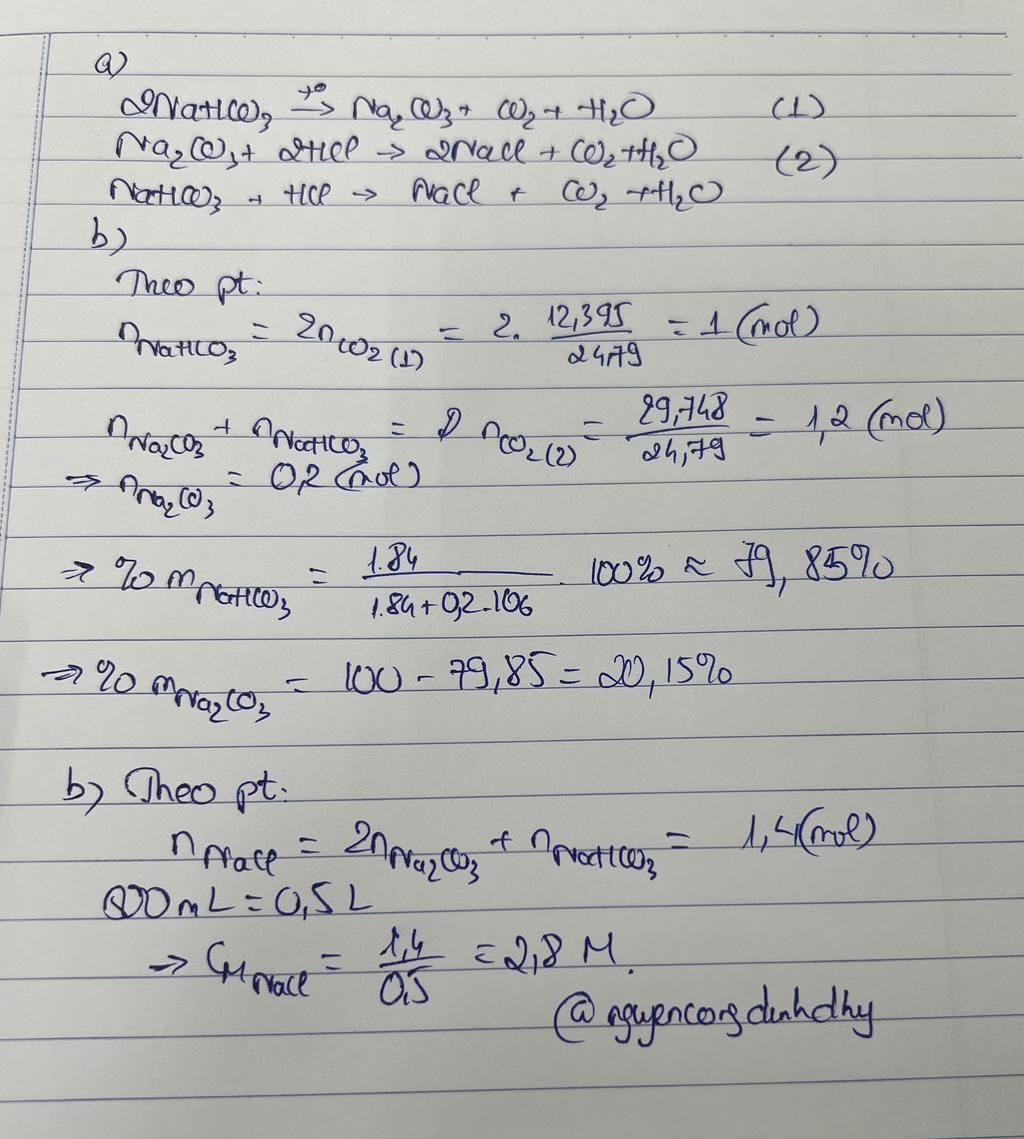 a)
2NaHCO₃ →(t°) Na₂CO₃ + CO₂ + H₂O (1)
Na₂CO₃ + 2HCl → 2NaCl + CO₂ + H₂O (2)
NaHCO₃ + HCl → NaCl + CO₂ + H₂O
b)
Theo pt:
n NaHCO₃ = 2n CO₂ (1) = 2. 12,395/24,79 = 1 (mol)
n Na₂CO₃ + n NaHCO₃ = n CO₂ (2) = 29,748/24,79 = 1,2 (mol)
⇒ n Na₂CO₃ = 0,2 (mol)
⇒ % m NaHCO₃ = 1.84/(1.84+0,2.106) . 100% ≈ 79,85%
→ % m Na₂CO₃ = 100 - 79,85 = 20,15%
b) Theo pt:
n NaCl = 2n Na₂CO₃ + n NaHCO₃ = 1,4 (mol)
500 mL = 0,5 L
→ CM NaCl = 1,4/0,5 = 2,8 M.
@nguyencongdinhdhy